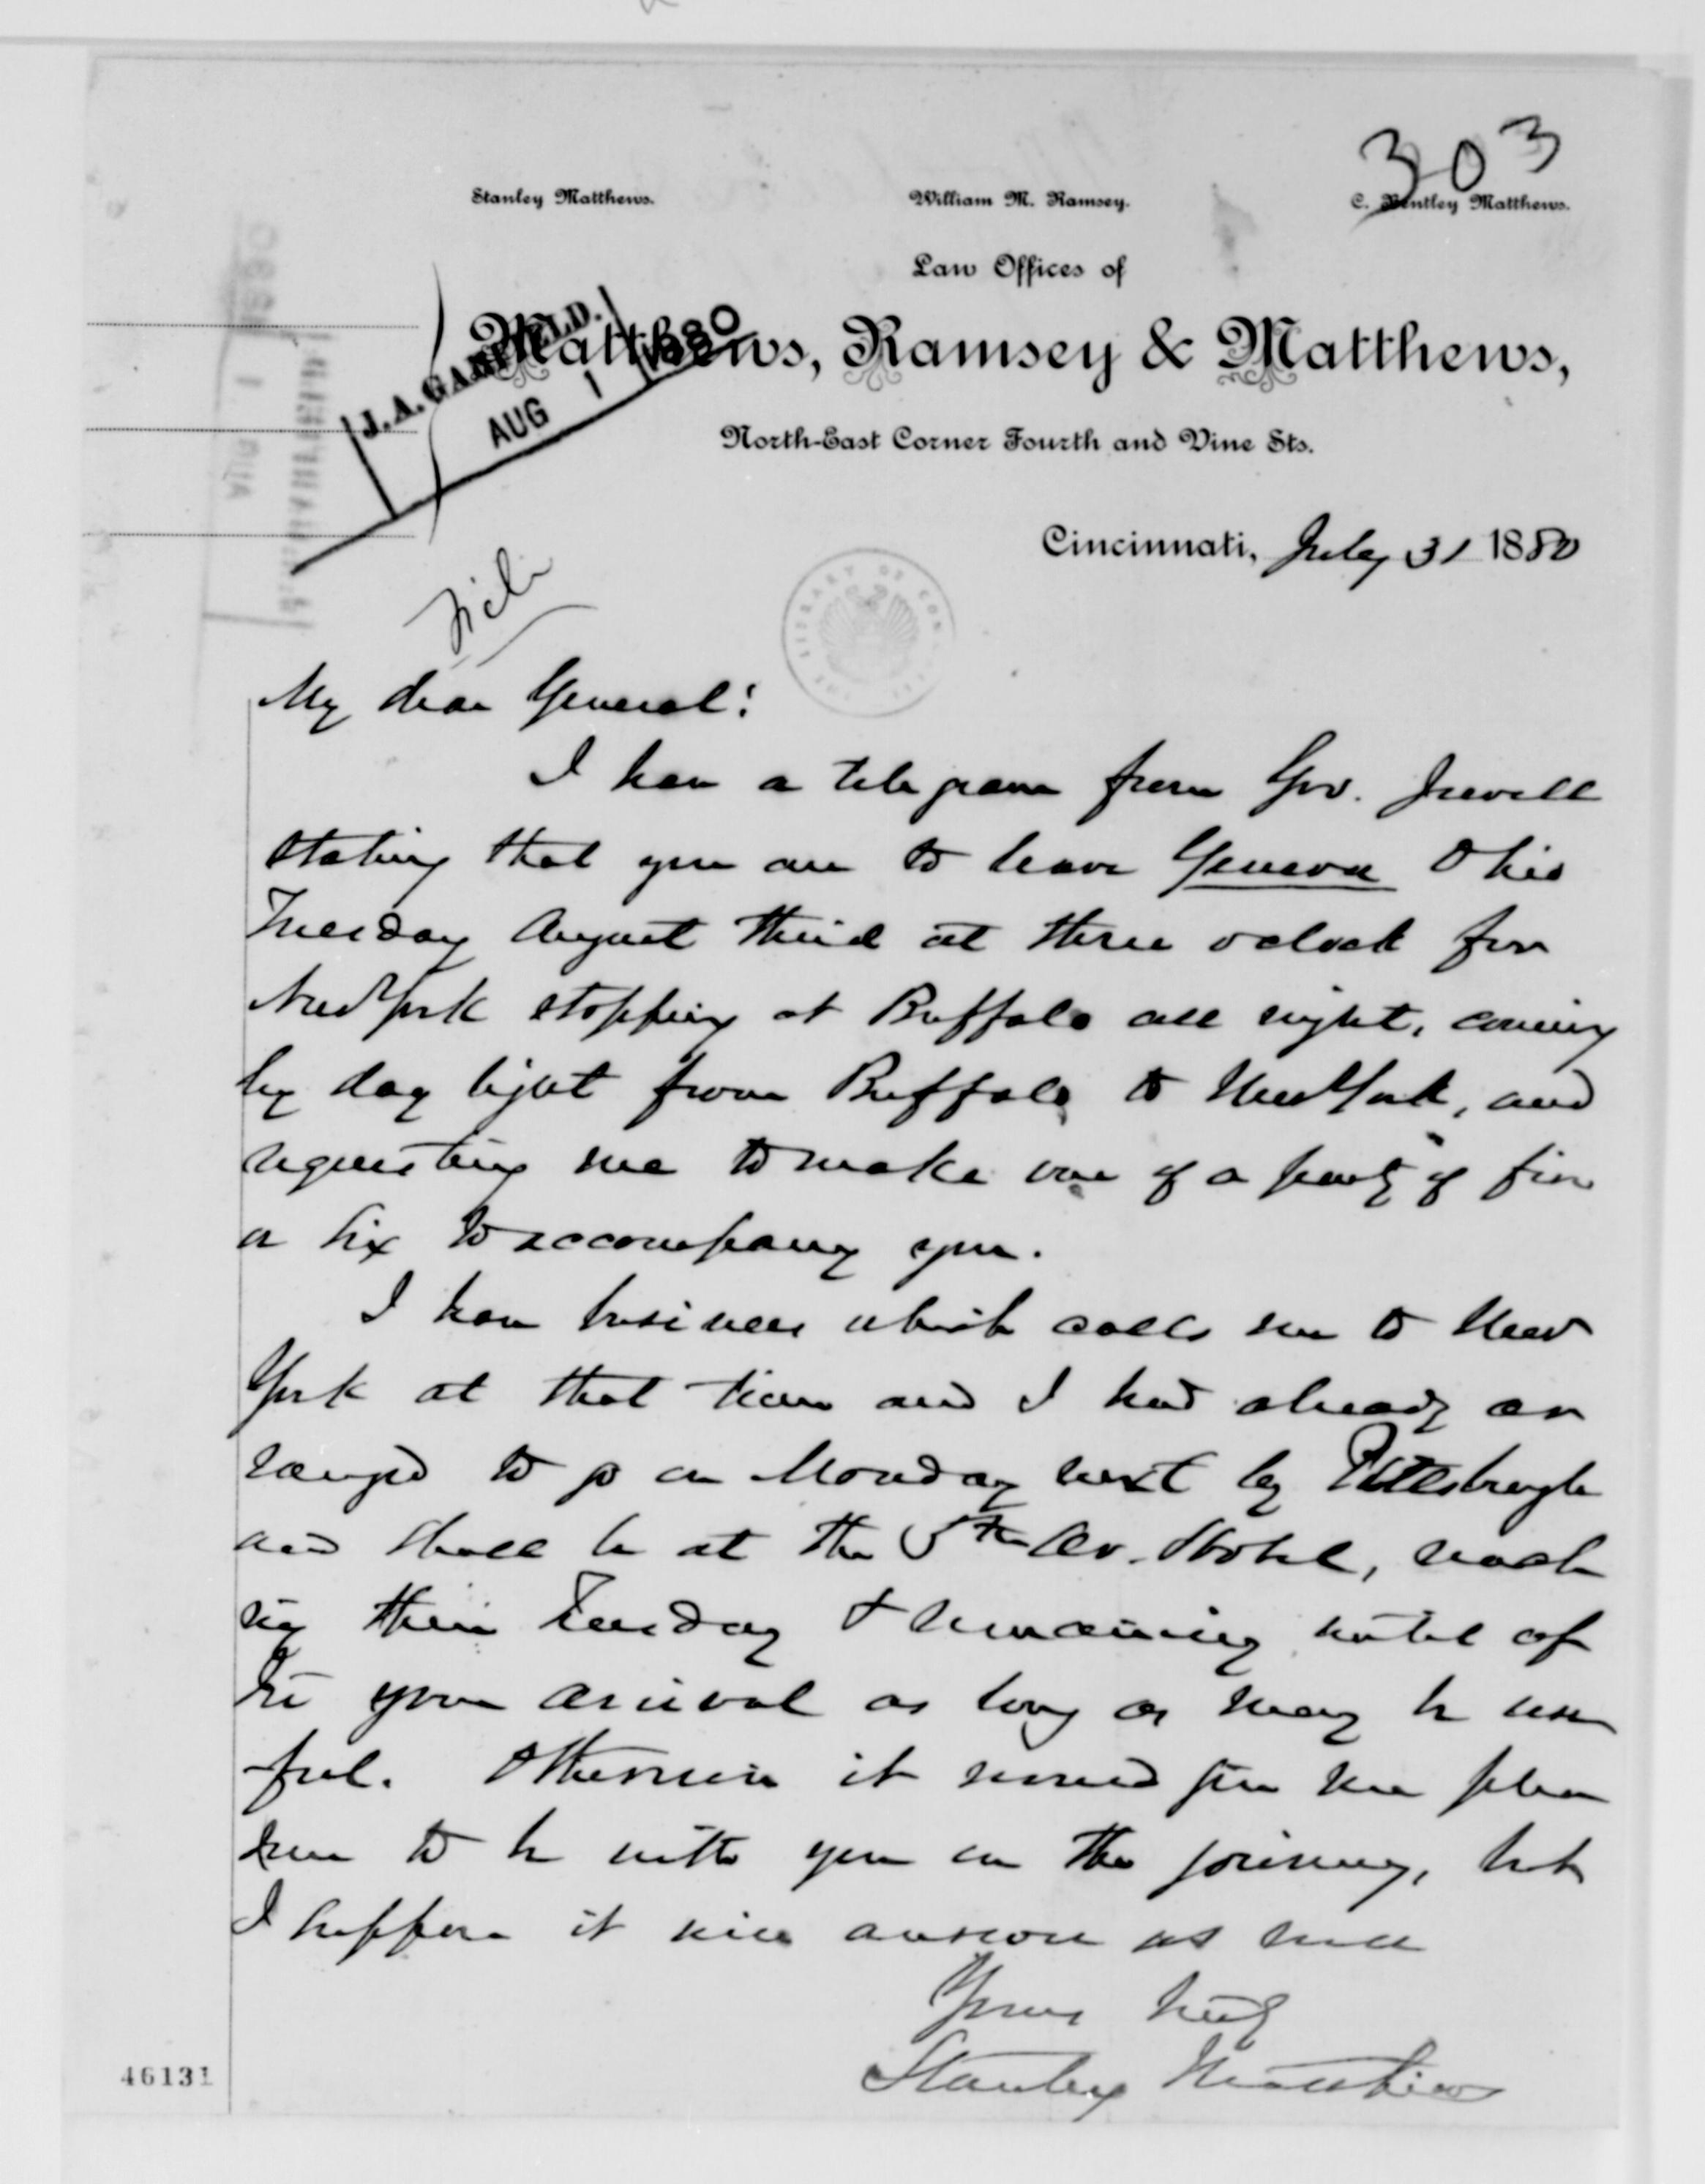 303
Stanley Matthews. William M. Ramsey. C. Bentley Matthews.
Law Offices of
Matthews, Ramsey & Matthews,
North-East Corner Fourth and Vine Sts.
J. A. GARFIELD.
AUG 1 1880
Cincinnati, July 31 1880
File
My dear General:
I have a telegram from Gov. Jewell
stating that you are to leave Geneva Ohio
Tuesday August third at three oclock for
New York stopping at Buffalo all night, coming
by day light from Buffalo to New York, and
requesting me to make one of a party of five
or six to accompany you.
I have business which calls me to New
York at that time and I had already ar
ranged to go on Monday next by Pittsburgh
and shall be at the 5th Av. Hotel, reach
ing there Tuesday & remaining until af
ter your arrival as long as may be use
ful. Otherwise it would give me plea
sure to be with you on the journey, but
I suppose it will answer as well
Yours truly
Stanley Matthews
46131